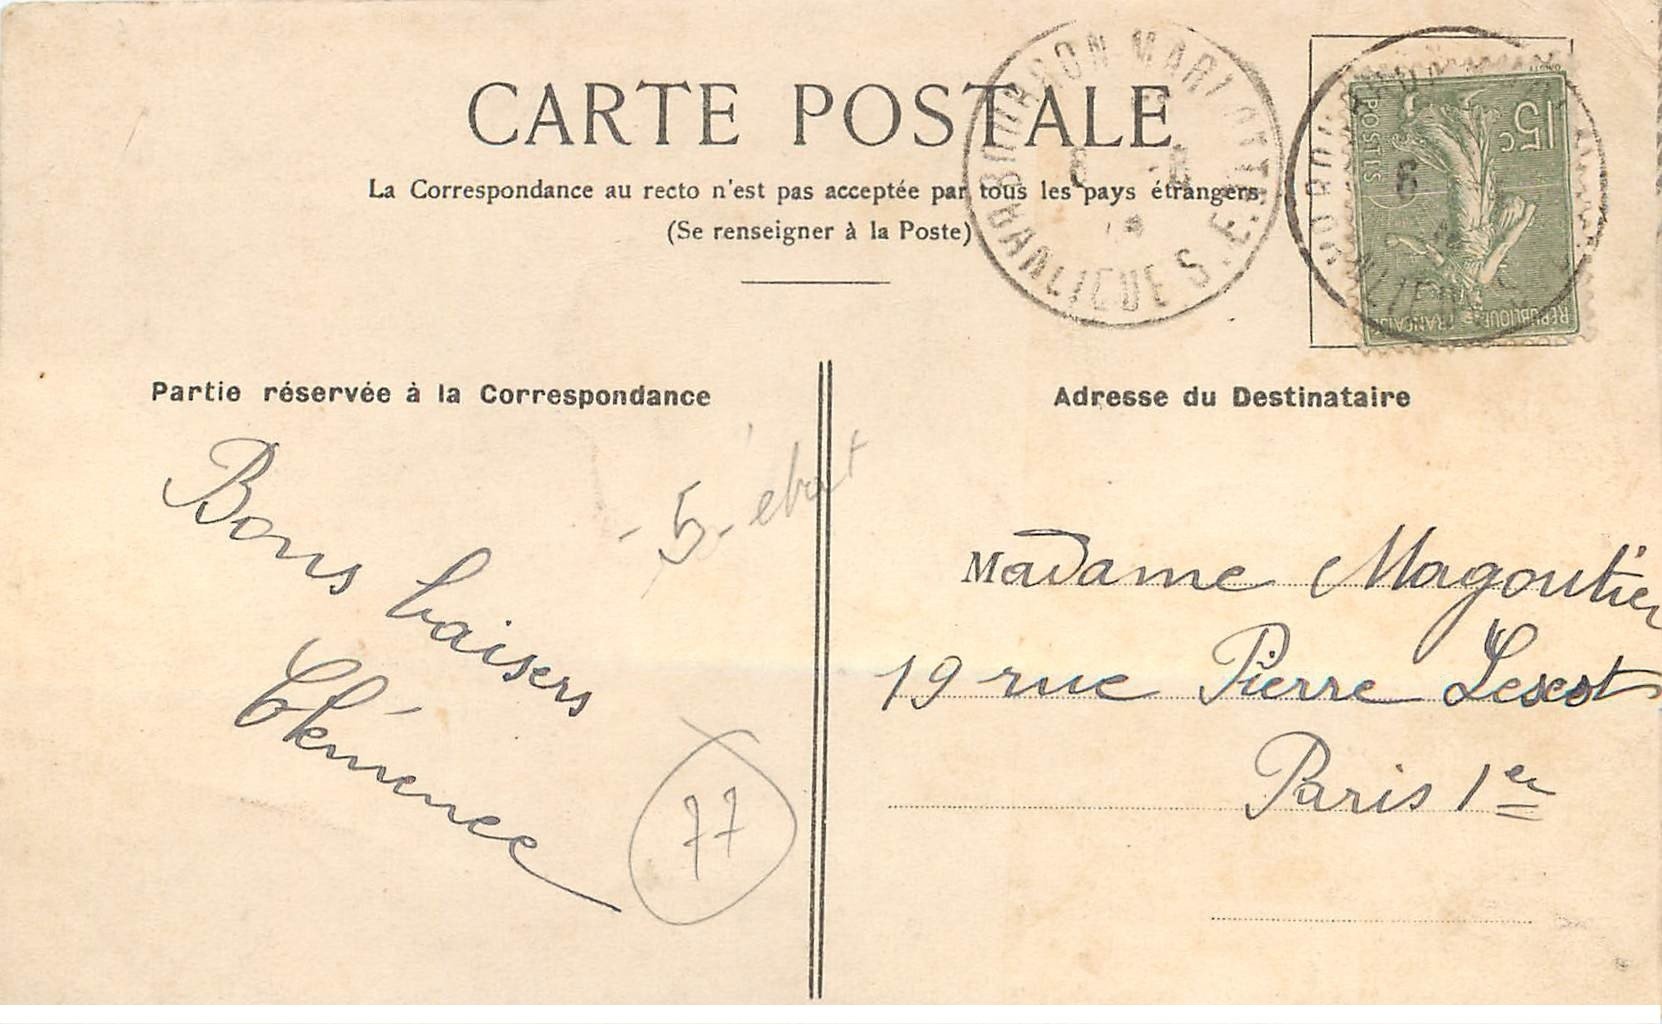 CARTE POSTALE
La Correspondance au recto n'est pas acceptée par tous les pays étrangers
(Se renseigner à la Poste)
BOURRON MARLOTTE
BANLIEUE S. E.
POSTES
15c
REPUBLIQUE FRANÇAISE
Partie réservée à la Correspondance
Adresse du Destinataire
- 5 -
Bons baisers
Clémence
77
Madame Magoutier
19 rue Pierre Lescot
Paris 1er